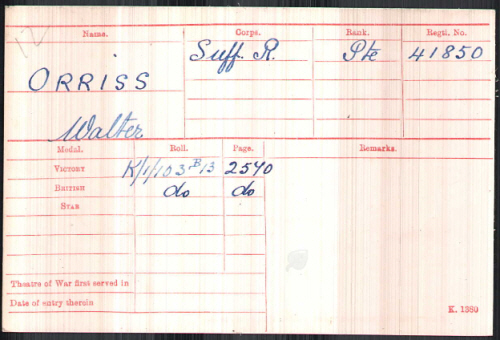 Name. Corps. Rank. Regtl. No.
ORRISS Suff. R. Pte 41850
Walter
Medal. Roll. Page. Remarks.
VICTORY K/1/103 B13 2570
BRITISH do do
STAR
Theatre of War first served in
Date of entry therein
K. 1380